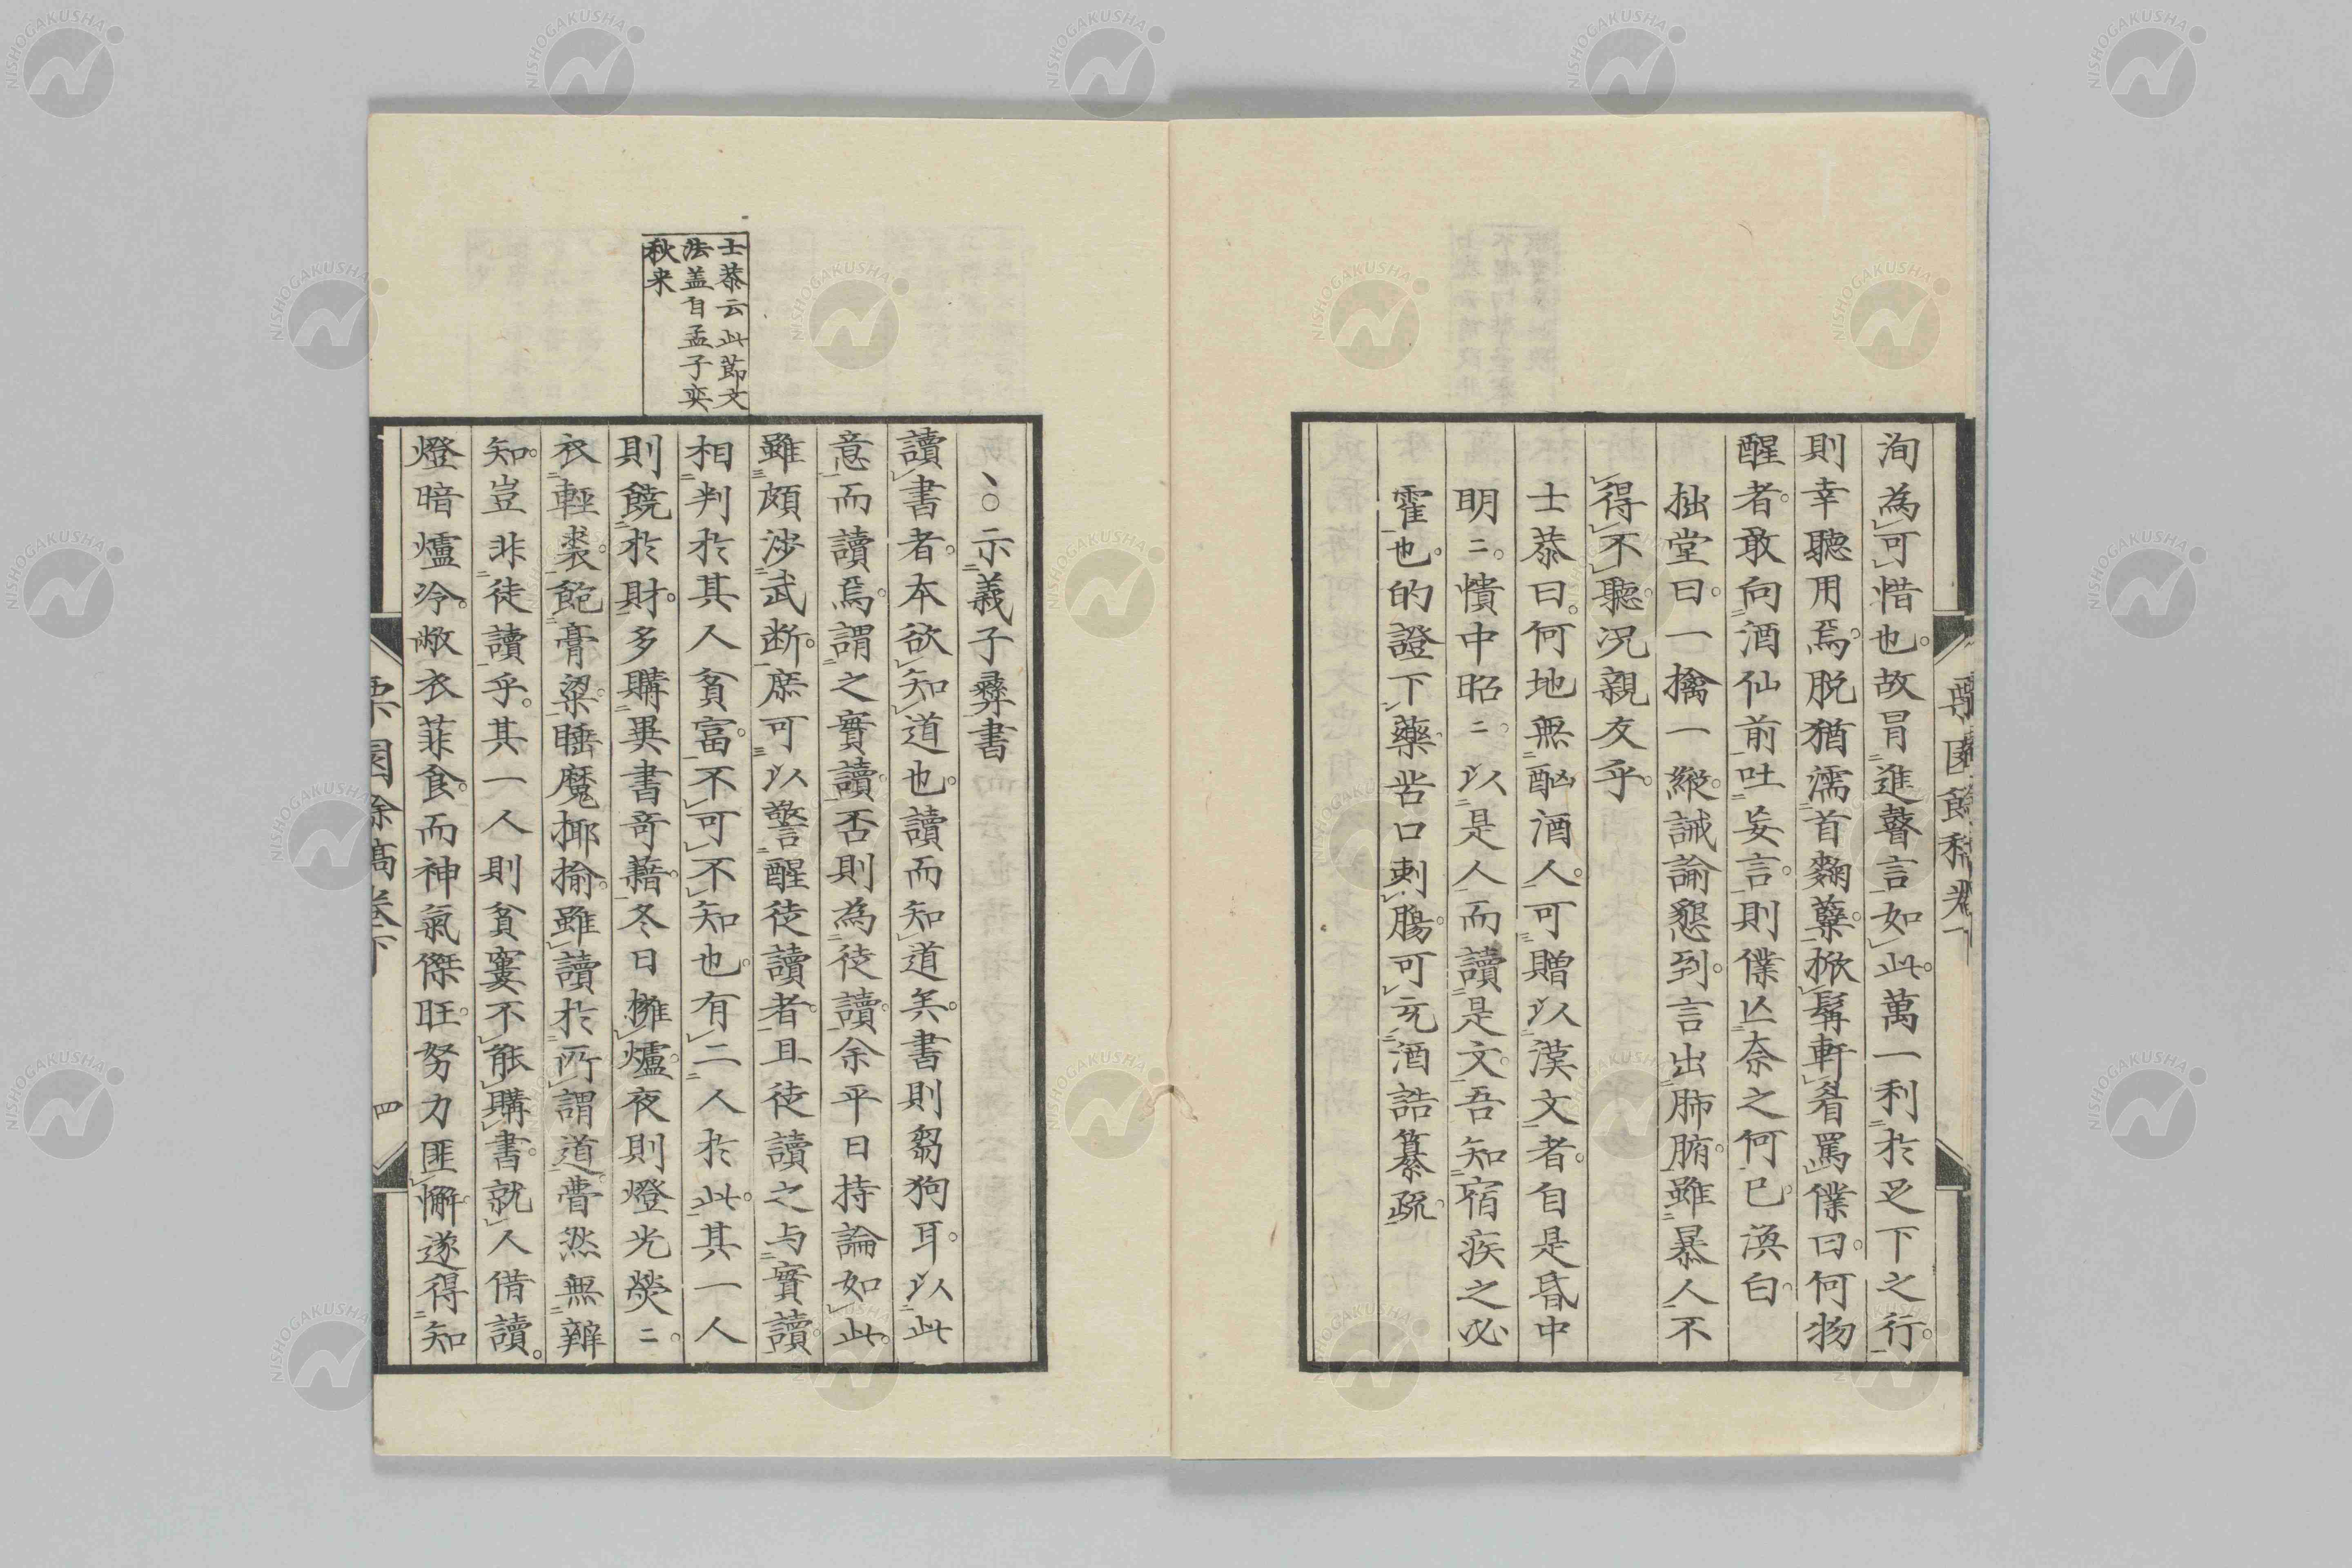 洵為可惜也。故冒進瞽言如此。萬一利於足下之行。
則幸聽用焉。脱猶濡首麴糵。掀髯軒眉罵僕曰。何物
醒者。敢向酒仙前吐妄言。則僕亾奈之何已。渙白。
拙堂曰。一擒一縱。誡諭懇到。言出肺腑。雖暴人不
得不聽。況親友乎。
士恭曰。何地無酗酒人。可贈以漢文者。自是昏中
明〻。憒中昭〻。以是人而讀是文。吾知宿疾之必
霍也。的證下藥。苦口刺腸。可充酒誥纂疏。
士恭云此節文
法盖自孟子奕
秋来
、○示義子彝書
讀書者。本欲知道也。讀而知道矣。書則芻狗耳。以此
意而讀焉。謂之實讀。否則為徒讀。余平日持論如此。
雖頗涉武断。庶可以警醒徒讀者。且徒讀之与實讀
相判於其人貧富。不可不知也。有二人於此。其一人
則饒於財。多購異書奇籍。冬日擁爐。夜則燈光熒〻。
衣輕裘。飽膏粱。睡魔揶揄。雖讀於所謂道。瞢然無辨
知。豈非徒讀乎。其一人則貧窶不能購書。就人借讀。
燈暗爐冷。敝衣菲食。而神氣傑旺。努力匪懈。遂得知
栗園餘稿卷下
四
NISHOGAKUSHA